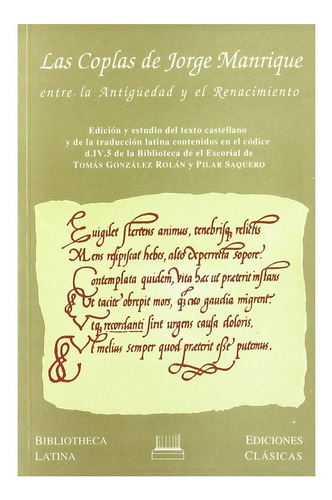 Las Coplas de Jorge Manrique
entre la Antigüedad y el Renacimiento
Edición y estudio del texto castellano
y de la traducción latina contenidos en el códice
d.IV.5 de la Biblioteca de el Escorial de
TOMÁS GONZÁLEZ ROLÁN Y PILAR SAQUERO
Euigilet stertens animus, tenebrisq; relictis
Mens resipiscat hebes, alto deperrecta sopore.
Contemplata quidem, vita hac ut praeterit instans
Et tacite obrepit mors, quo gaudia migrent.
Vtq, recordanti sint urgens causa doloris,
Et melius semper quod praeterit esse putemus.
BIBLIOTHECA
LATINA
EDICIONES
CLÁSICAS